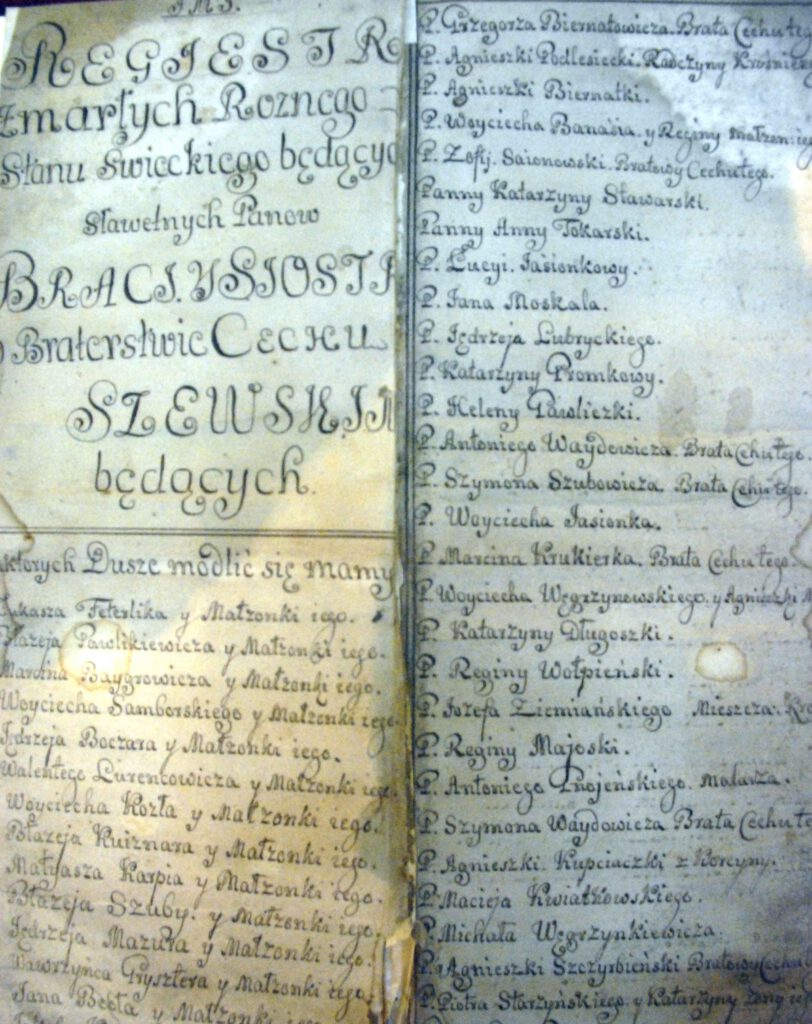 REGIESTR
Zmarłych Roznego
Stanu Swieckiego będącyc
Sławetnych Panow
BRACI. Y SIOSTR
Braterstwie CECHU
SZEWSKIM
będących.
ktorych Dusze modlić się mamy
Łukasza Feterlika y Małzonki iego.
Błazeja Pawlikiewicza y Małzonki iego.
Marcina Baygrowicza y Małzonki iego.
Woyciecha Samborskiego y Małzonki iego.
Jędrzeja Boczara y Małzonki iego.
Walentego Lurencowicza y Małzonki iego.
Woyciecha Kozła y Małzonki iego.
Błazeja Kuiznara y Małzonki iego.
Matyasza Karpia y Małzonki iego.
Błazeja Szuby. y Małzonki iego.
Jędrzeja Mazura y Małzonki iego.
Wawrzyńca Grysztera y Małzonki iego.
Jana Becła y Małzonki iego.
P. Grzegorza Biernatowicza. Brata Cechu teg
P. Agnieszki Podlesiecki. Radczyny Krośnieńs
P. Agnieszki Biernatki.
P. Woyciecha Banasia. y Reginy małzon: ieg
P. Zofij. Saionowski. Bratowy Cechu tego.
Panny Katarzyny Stawarski.
Panny Anny Tokarski.
P. Łucyi. Jasionkowy.
P. Jana Moskala.
P. Jędrzeja Lubryckiego.
P. Katarzyny Promkowy.
P. Heleny Pawliczki.
P. Antoniego Waydowicza. Brata Cechu tego.
P. Szymona Szubowicza. Brata Cechu tego.
P. Woyciecha Jasionka.
P. Marcina Krukierka. Brata Cechu tego.
P. Woyciecha Węgrzynowskiego. y Agnieszki M
P. Katarzyny Długoszki.
P. Reginy Wołpieński.
P. Jozefa Ziemiańskiego Mieszcza: Kro
P. Reginy Majoski.
P. Antoniego Gnojeńskiego. Malarza.
P. Szymona Waydowicza Brata Cechu te
P. Agnieszki. Kupciaczki z Korcyny.
P. Macieja Kwiatkowskiego.
P. Michała Węgrzynkiewicza.
P. Agnieszki Szczyrbieński Bratowy Cechu
P. Piotra Starzyńskiego. y Katarzyny zony ie